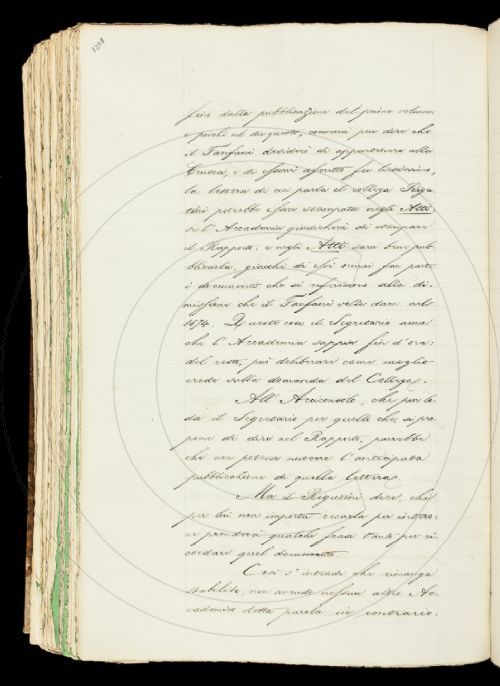 1218
fine dalla pubblicazione del primo volume:
e poichè nel dargliene, converrà pur dire che
il Fanfani desiderò di appartenere alla
Crusca, e di esservi ascritto fu vicinissimo,
la lettera di cui parla il collega Rigu-
tini potrebbe esser stampata negli Atti,
se l'Accademia giudicherà di stampare
il Rapporto: e negli Atti sarà bene pub-
blicarla, giacchè di essi ormai fan parte
i documenti che si riferiscono alla di-
missione che il Fanfani volle dare nel
1874. Queste cose il Segretario ama
che l'Accademia sappia fin d'ora:
del resto, può deliberare come meglio
crede sulla domanda del Collega.
All'Arciconsolo, che pur lo-
da il Segretario per quello che si pro-
pone di dire nel Rapporto, parrebbe
che non potesse nuocere l'anticipata
pubblicazione di quella lettera.
Ma il Rigutini dice, che
per lui non importa: e
ne prenderà qualche frase tanto per ri-
cordare quel documento.
Così s'intende che rimanga
stabilito, non avendo nessun altro Ac-
cademico detta parola in contrario.